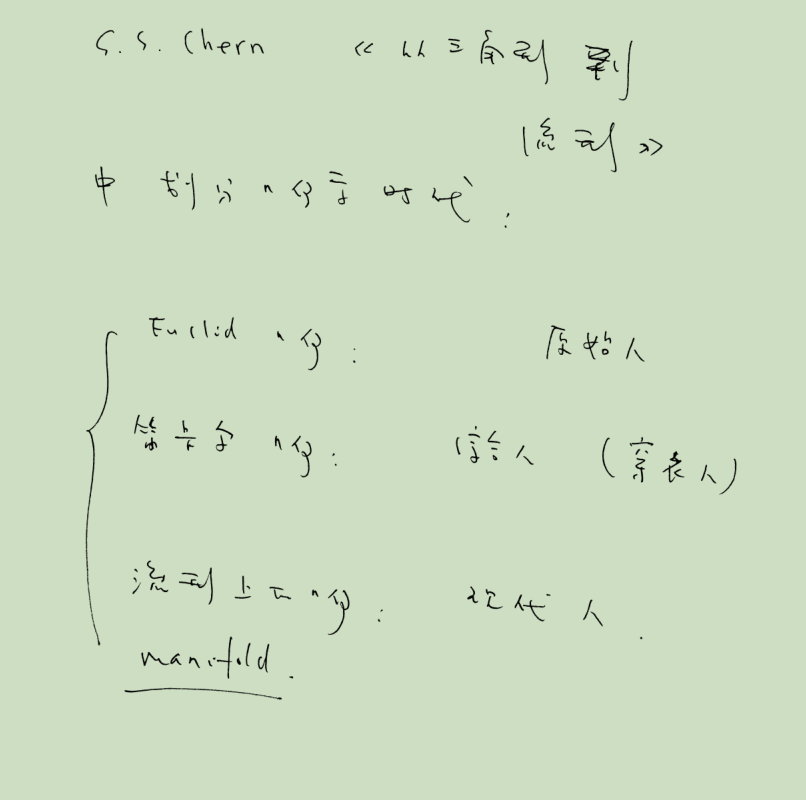 S. S. Chern 《从三角形到
流形》
中划分几何学时代:
Euclid 几何: 原始人
笛卡尔几何: 穿衣人 (穿衣人)
流形上的几何: 现代人.
manifold.